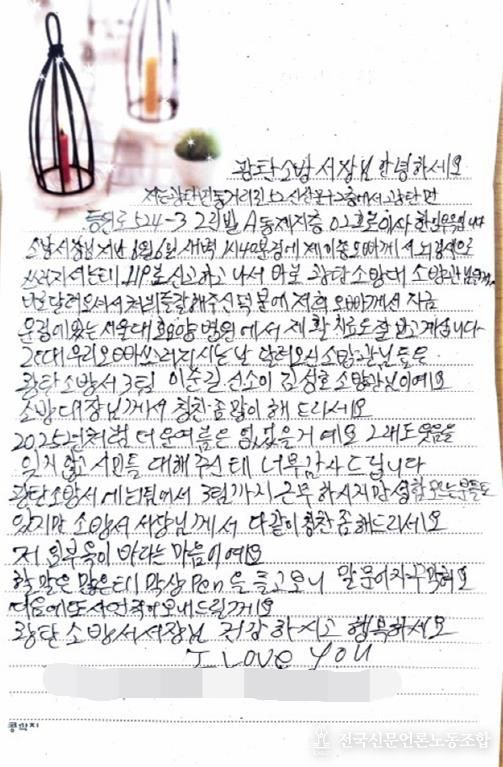 광탄소방서장님 안녕하세요
저는 광탄면
등원로 524-3 A동 02호로 이사 한
소방서장님 지난 8월 6일 새벽 1시40분경에 제 오빠께서 뇌경색으로
쓰러지셨는데 119로 신고하고 나서 바로 광탄 소방대 소방관님
달려오셔서 처치를 잘해주신 덕분에 저희 오빠께서 지금
운정에 있는 서울대효요양병원에서 재활치료도 잘 받고 계십니다
그런데 우리오빠 쓰러지시는 날 달려오신 소방관님들은
광탄 소방서 3팀 이준길 선소이 김성호 소방관님이에요
소방대장님께서 칭찬 좀 많이 해 드리세요
2025년처럼 더운여름은 없었을거예요 그래도 웃음을
잊지 않고 시민들 대해주신데 너무 감사드립니다
광탄소방서에 1팀에서 3팀까지 근무 하시지만 성함 모르는 분들도
있지만 소방서 서장님께서 다같이 칭찬 좀 해드리세요
저 의 부욱이 바라는 마음이에요
할 말은 많은데 막상 Pen을 들고보니 말문이 막혀요
다음에 또 사연 적어 보내드릴게요
광탄 소방서서장님 건강하시고 행복하세요
I LOVE YOU
콩깍지
전국신문언론노동조합